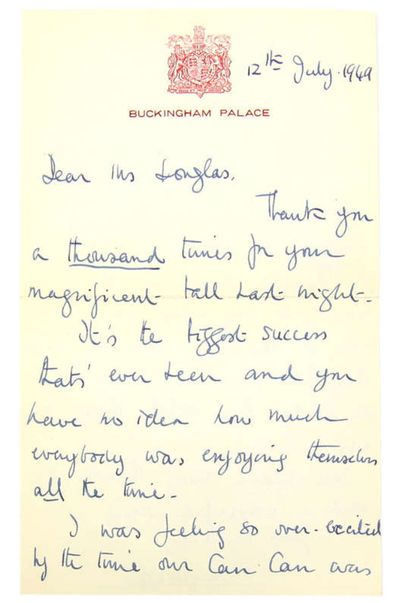 12th July. 1949
BUCKINGHAM PALACE
Dear Mrs Douglas,
Thank you
a thousand times for your
magnificent ball last night.
It's the biggest success
thats' ever been and you
have no idea how much
everybody was enjoying themselves
all the time.
I was feeling so over-excited
by the time our Can Can was